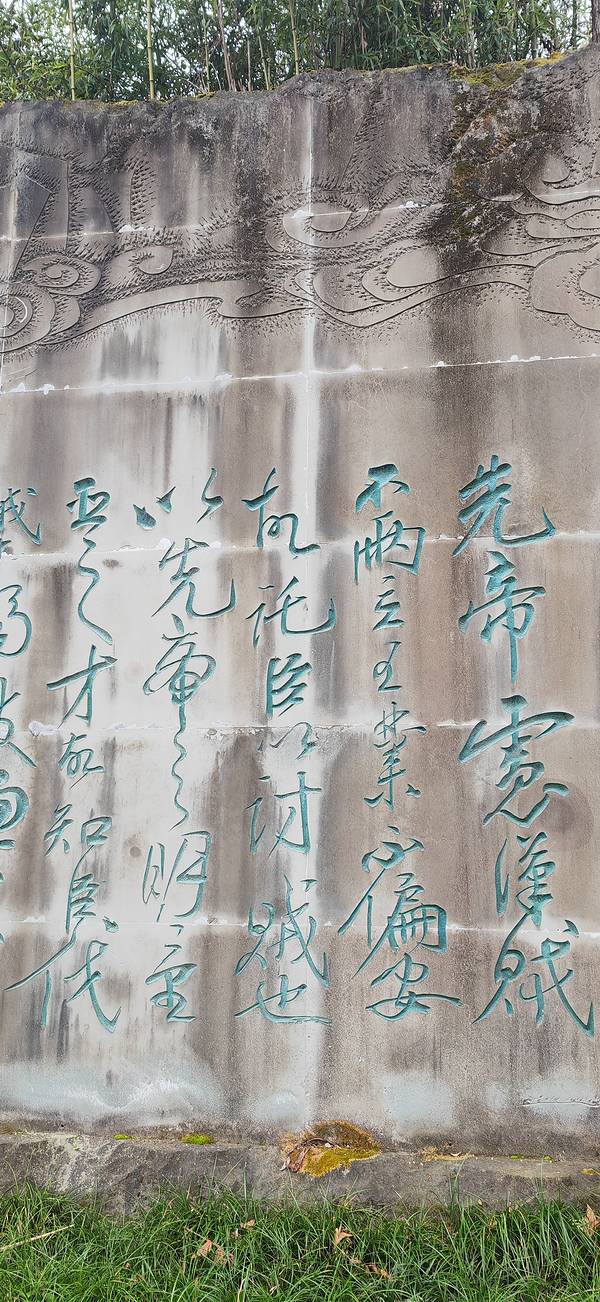 先帝慮漢賊
不兩立王業不偏安
故託臣以討賊也
以先帝之明量
臣之才故知臣伐